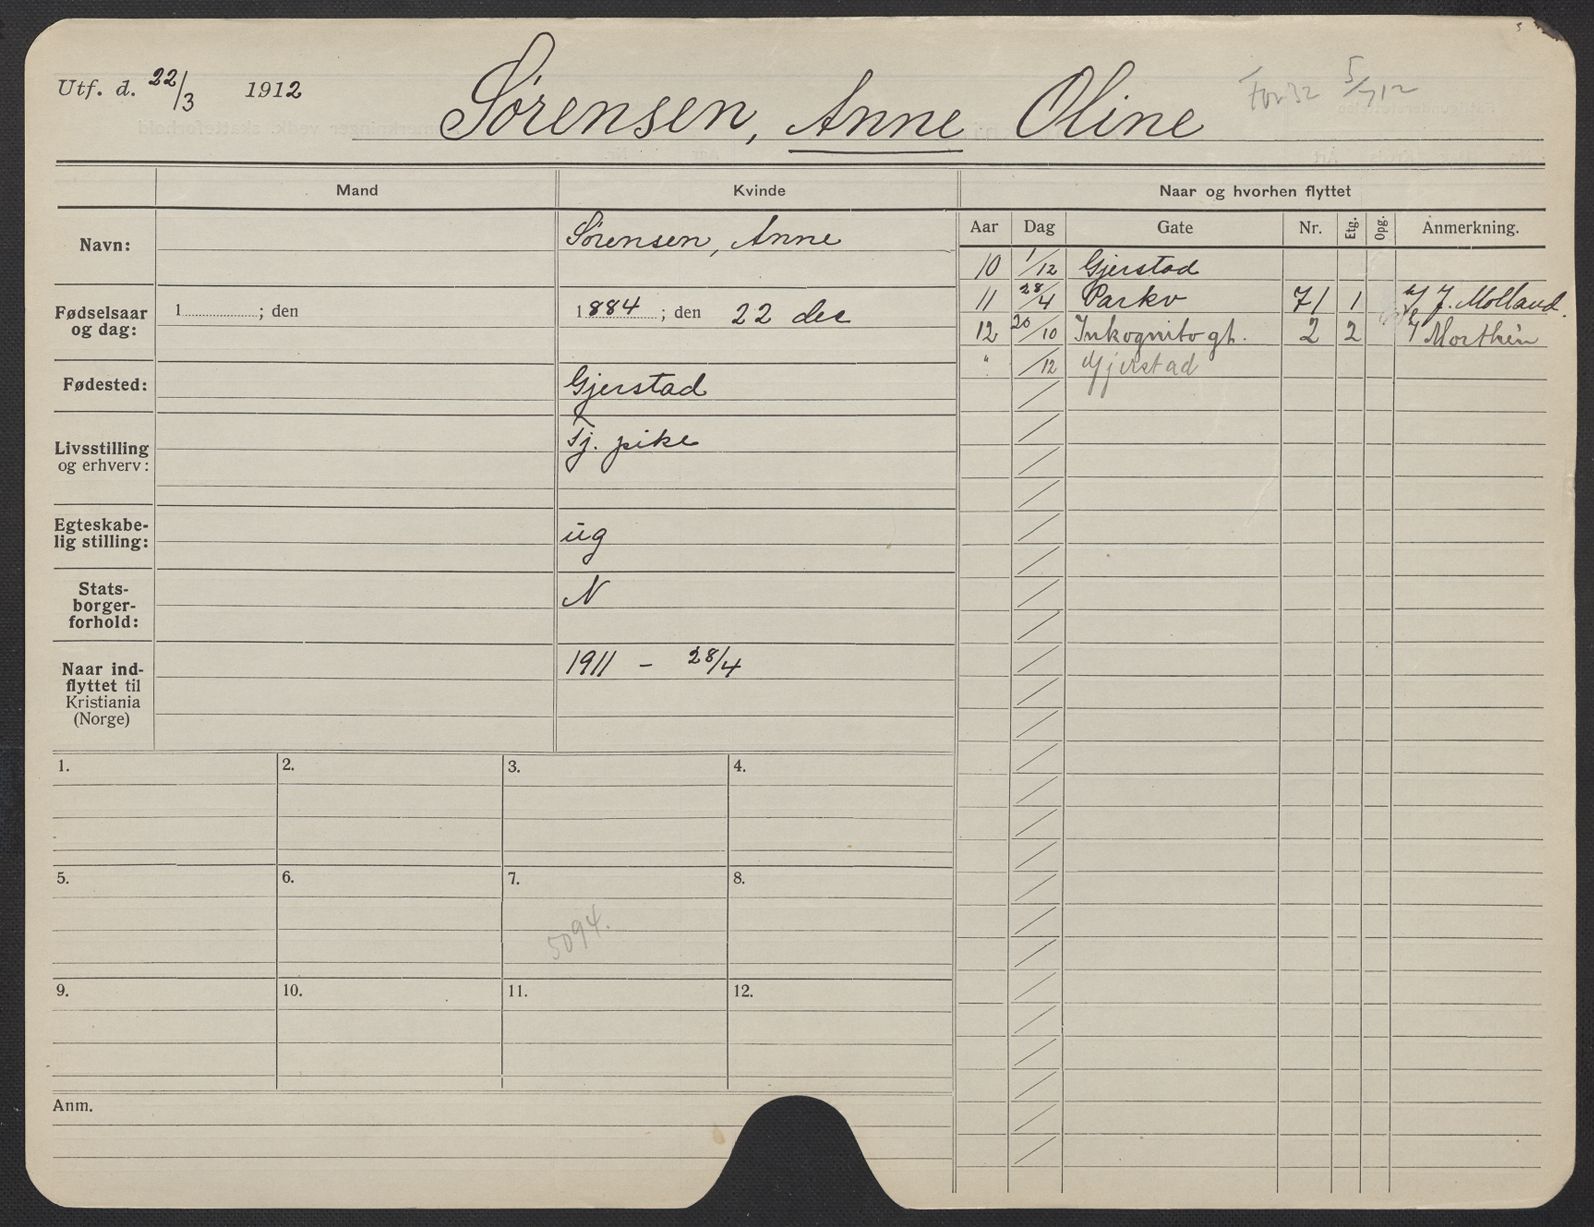 Utf. d. 22/3 1912
Sørensen, Anne Oline
5/7 12
Mand
Kvinde
Naar og hvorhen flyttet
Aar Dag Gate Nr. Etg. Opg. Anmerkning.
Navn: Sørensen, Anne
Fødselsaar og dag: 1 ; den 1884 ; den 22 dec
Fødested: Gjerstad
Livsstilling og erhverv: Tj. pike
Egteskabe-
lig stilling: ug
Stats-
borger-
forhold: N
Naar ind-
flyttet til
Kristiania
(Norge) 1911 - 28/4
10 1/12 Gjerstad
11 28/4 Parkv 71 1 J. Molland.
12 20/10 Inkognito gt. 2 2 Morthén
" /12 Gjerstad
1. 2. 3. 4.
5. 6. 7. 8.
5094.
9. 10. 11. 12.
Anm.